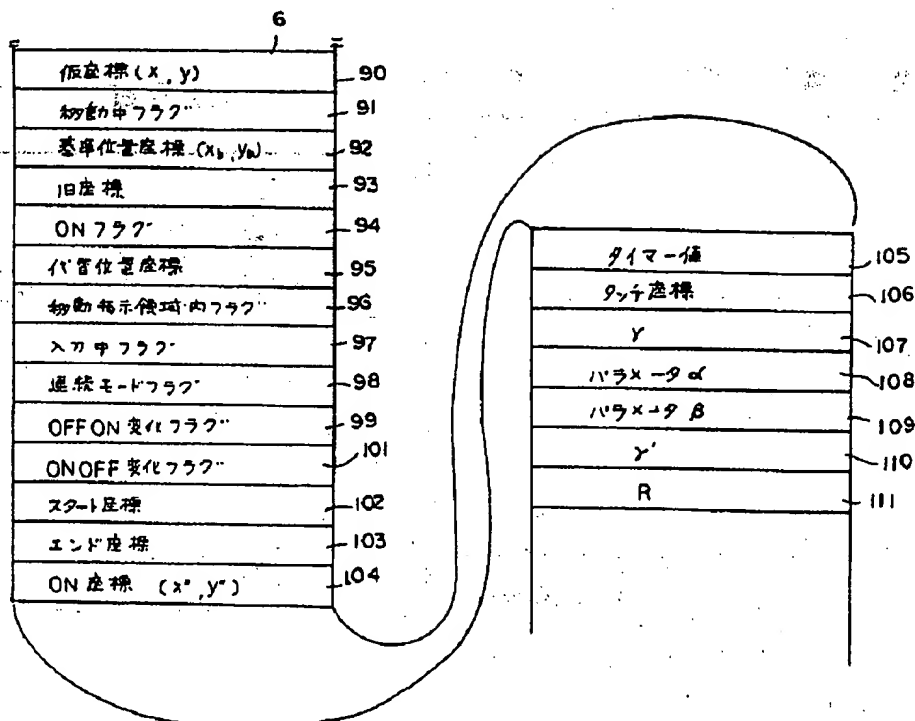 6
仮座標(x,y) 90
移動中フラグ 91
基準位置座標(xb,yb) 92
旧座標 93
ONフラグ 94
代替位置座標 95
移動指示領域内フラグ 96
入力中フラグ 97
連続モードフラグ 98
OFFON変化フラグ 99
ONOFF変化フラグ 101
スタート座標 102
エンド座標 103
ON座標 (x",y") 104
タイマー値 105
タッチ座標 106
γ 107
パラメータα 108
パラメータβ 109
γ' 110
R 111